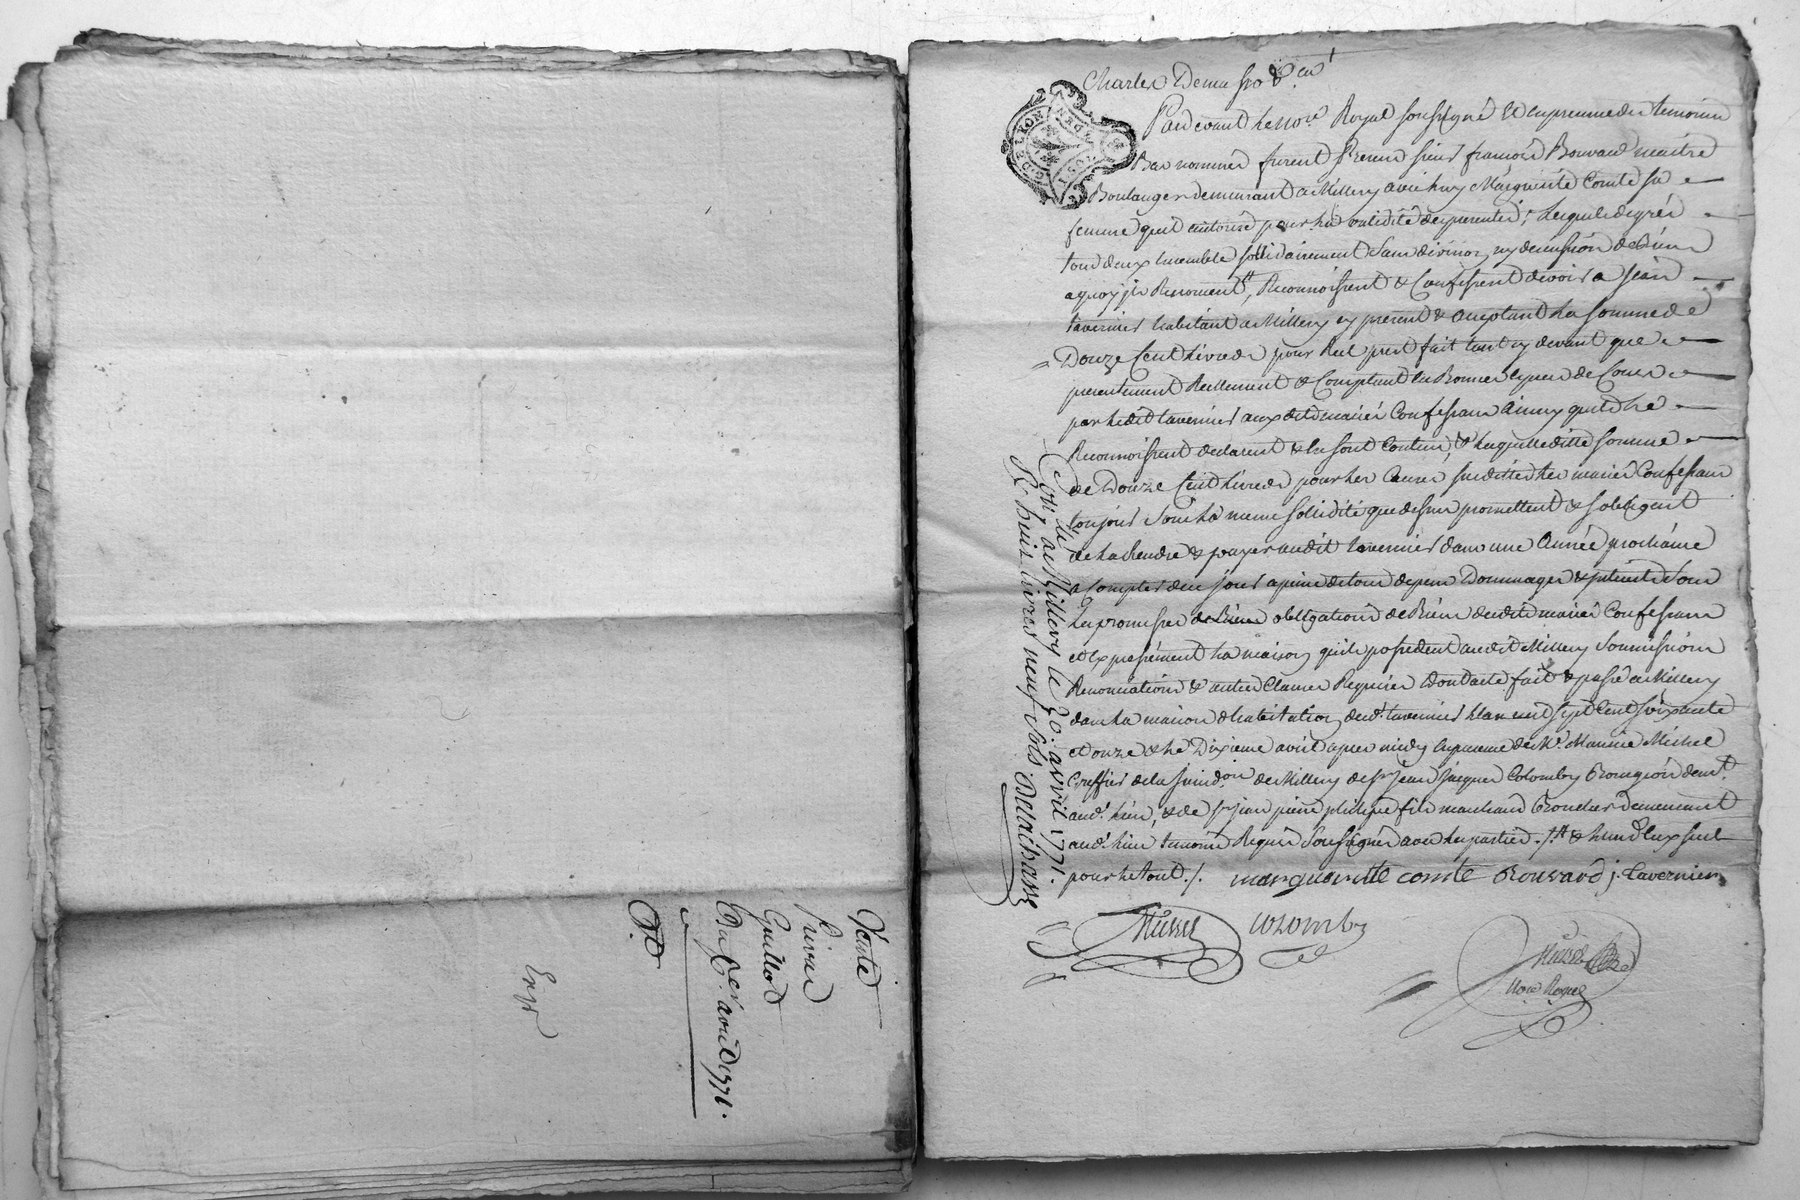 Vente
Guillot
avril 1771.
Charles
Pardevant le No.re Royal soussigné & en presence des temoins
Bas nommés furent Presens sieur françois Bouvard maitre
Boulanger demeurant a Millery avec luy Marguerite Comte sa
femme quil autorise pour la validité des presentes, lesquels de grés
tous deux ensemble sollidairement sans division ny discussion de Biens
a quoy ils Renoncent, Reconnoissent & Confessent devoir a Jean
tavernier habitant a Millery cy present & acceptant la somme de
Douze Cent livres pour Reel prest fait tant cy devant que
presentement Reellement & Comptant en Bonnes especes de Cours
par ledit tavernier auxdits mariés Confessans ainsy quils le
Reconnoissent declarent & en sont Contens, & laquelle ditte somme
de Douze Cent livres pour les Causes susdittes les mariés Confessans
toujours sous la meme sollidité que dessus promettent & sobligent
de la Rendre & payer audit tavernier dans une Année prochaine
a Compter de ce jour a peine de tous depens Dommages & interets sous
les promesses obligations de Biens desdits mariés Confessans
et Expressement la maison quils possedent audit Millery soumissions
Renonciations & autres Clauses Requises Dont acte fait & passé a Millery
dans la maison d'habitation dud. tavernier L'an mil sept Cent soixante
et onze & le Dixieme avril apres midy en presence de M.e Maurice Michel
Greffier de la Jurid.on de Millery de S.r Jean Jacques Colomby Chirurgien dem.t
aud. lieu, & de S.r jean pierre philipe fils marchand Boucher demeurant
aud. lieu temoins Requis soussignés avec les parties ./. & l'un d'eux seul
pour le tout ./. margueritte comte Bouvard j. tavernier
Michel colomby
No.re Royal
Controllé a Millery le 20. avril 1771.
R. huit livres neuf sols Delachasse